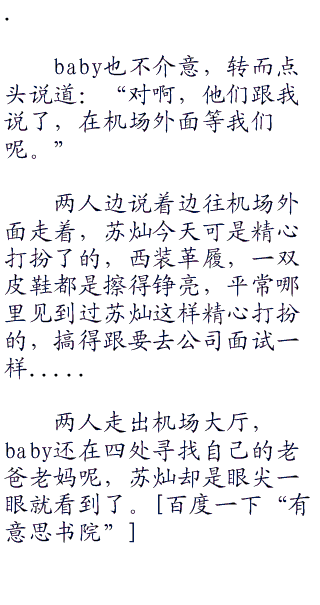 .
baby也不介意，转而点
头说道：“对啊，他们跟我
说了，在机场外面等我们
呢。”
两人边说着边往机场外
面走着，苏灿今天可是精心
打扮了的，西装革履，一双
皮鞋都是擦得铮亮，平常哪
里见到过苏灿这样精心打扮
的，搞得跟要去公司面试一
样.....
两人走出机场大厅，
baby还在四处寻找自己的老
爸老妈呢，苏灿却是眼尖一
眼就看到了。[百度一下“有
意思书院”]